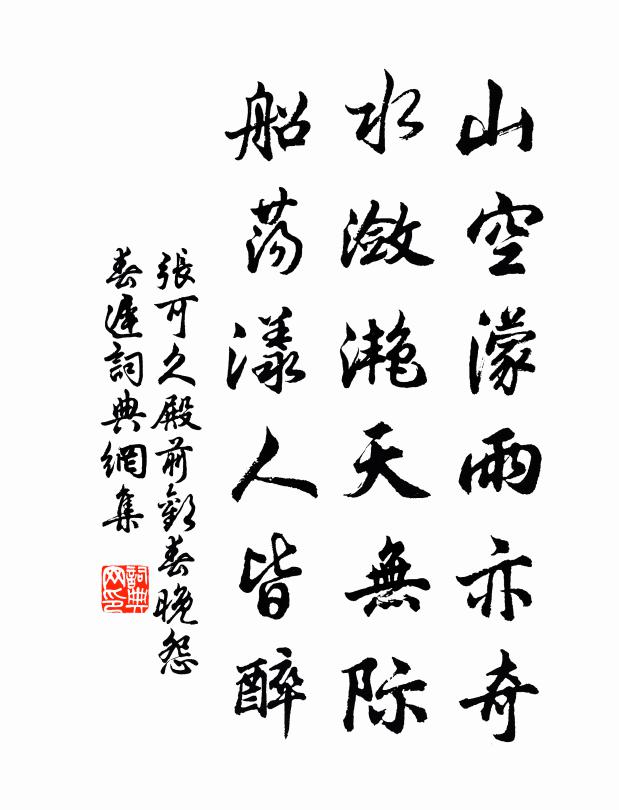 山空濛雨亦奇
水瀲灩天無際
船蕩漾人皆醉
張可久殿前歡春晚怨
春遲詞典網集
詞典
网印